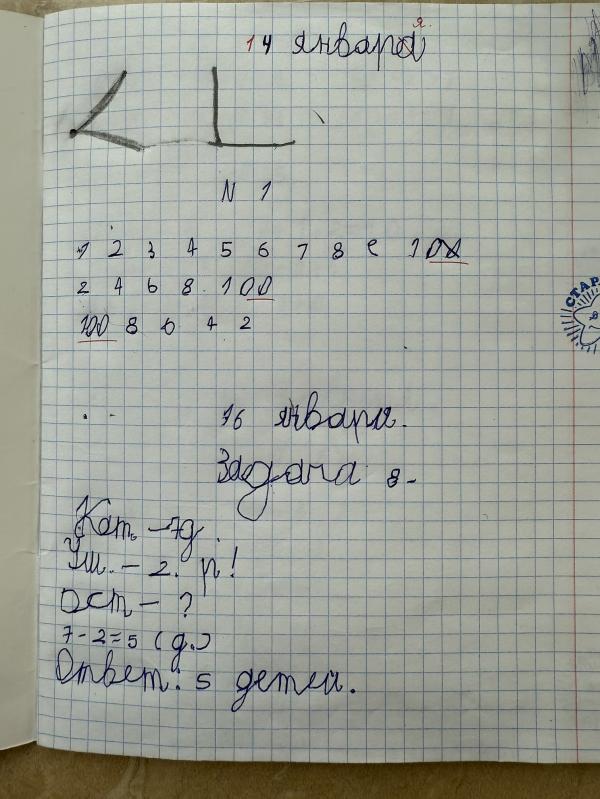 я.
14 января
N 1
1 2 3 4 5 6 7 8 е 100
2 4 6 8. 100
100 8 6 4 2
СТАР
16 января.
Задача 8-
Кат. - 7д.
Уш. - 2. р!
Ост - ?
7-2=5 (д.)
Ответ: 5 детей.